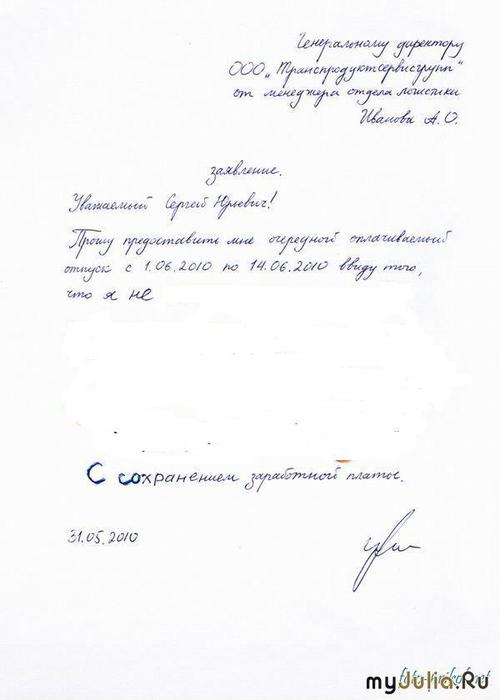 Генеральному директору
ООО „Транспродуктсервисгрупп“
от менеджера отдела логистики
Иванова А.О.
заявление.
Уважаемый Сергей Юрьевич!
Прошу предоставить мне очередной оплачиваемый
отпуск с 1.06.2010 по 14.06.2010 ввиду того,
что я не
С сохранением заработной платы.
31.05.2010
myJulia.Ru